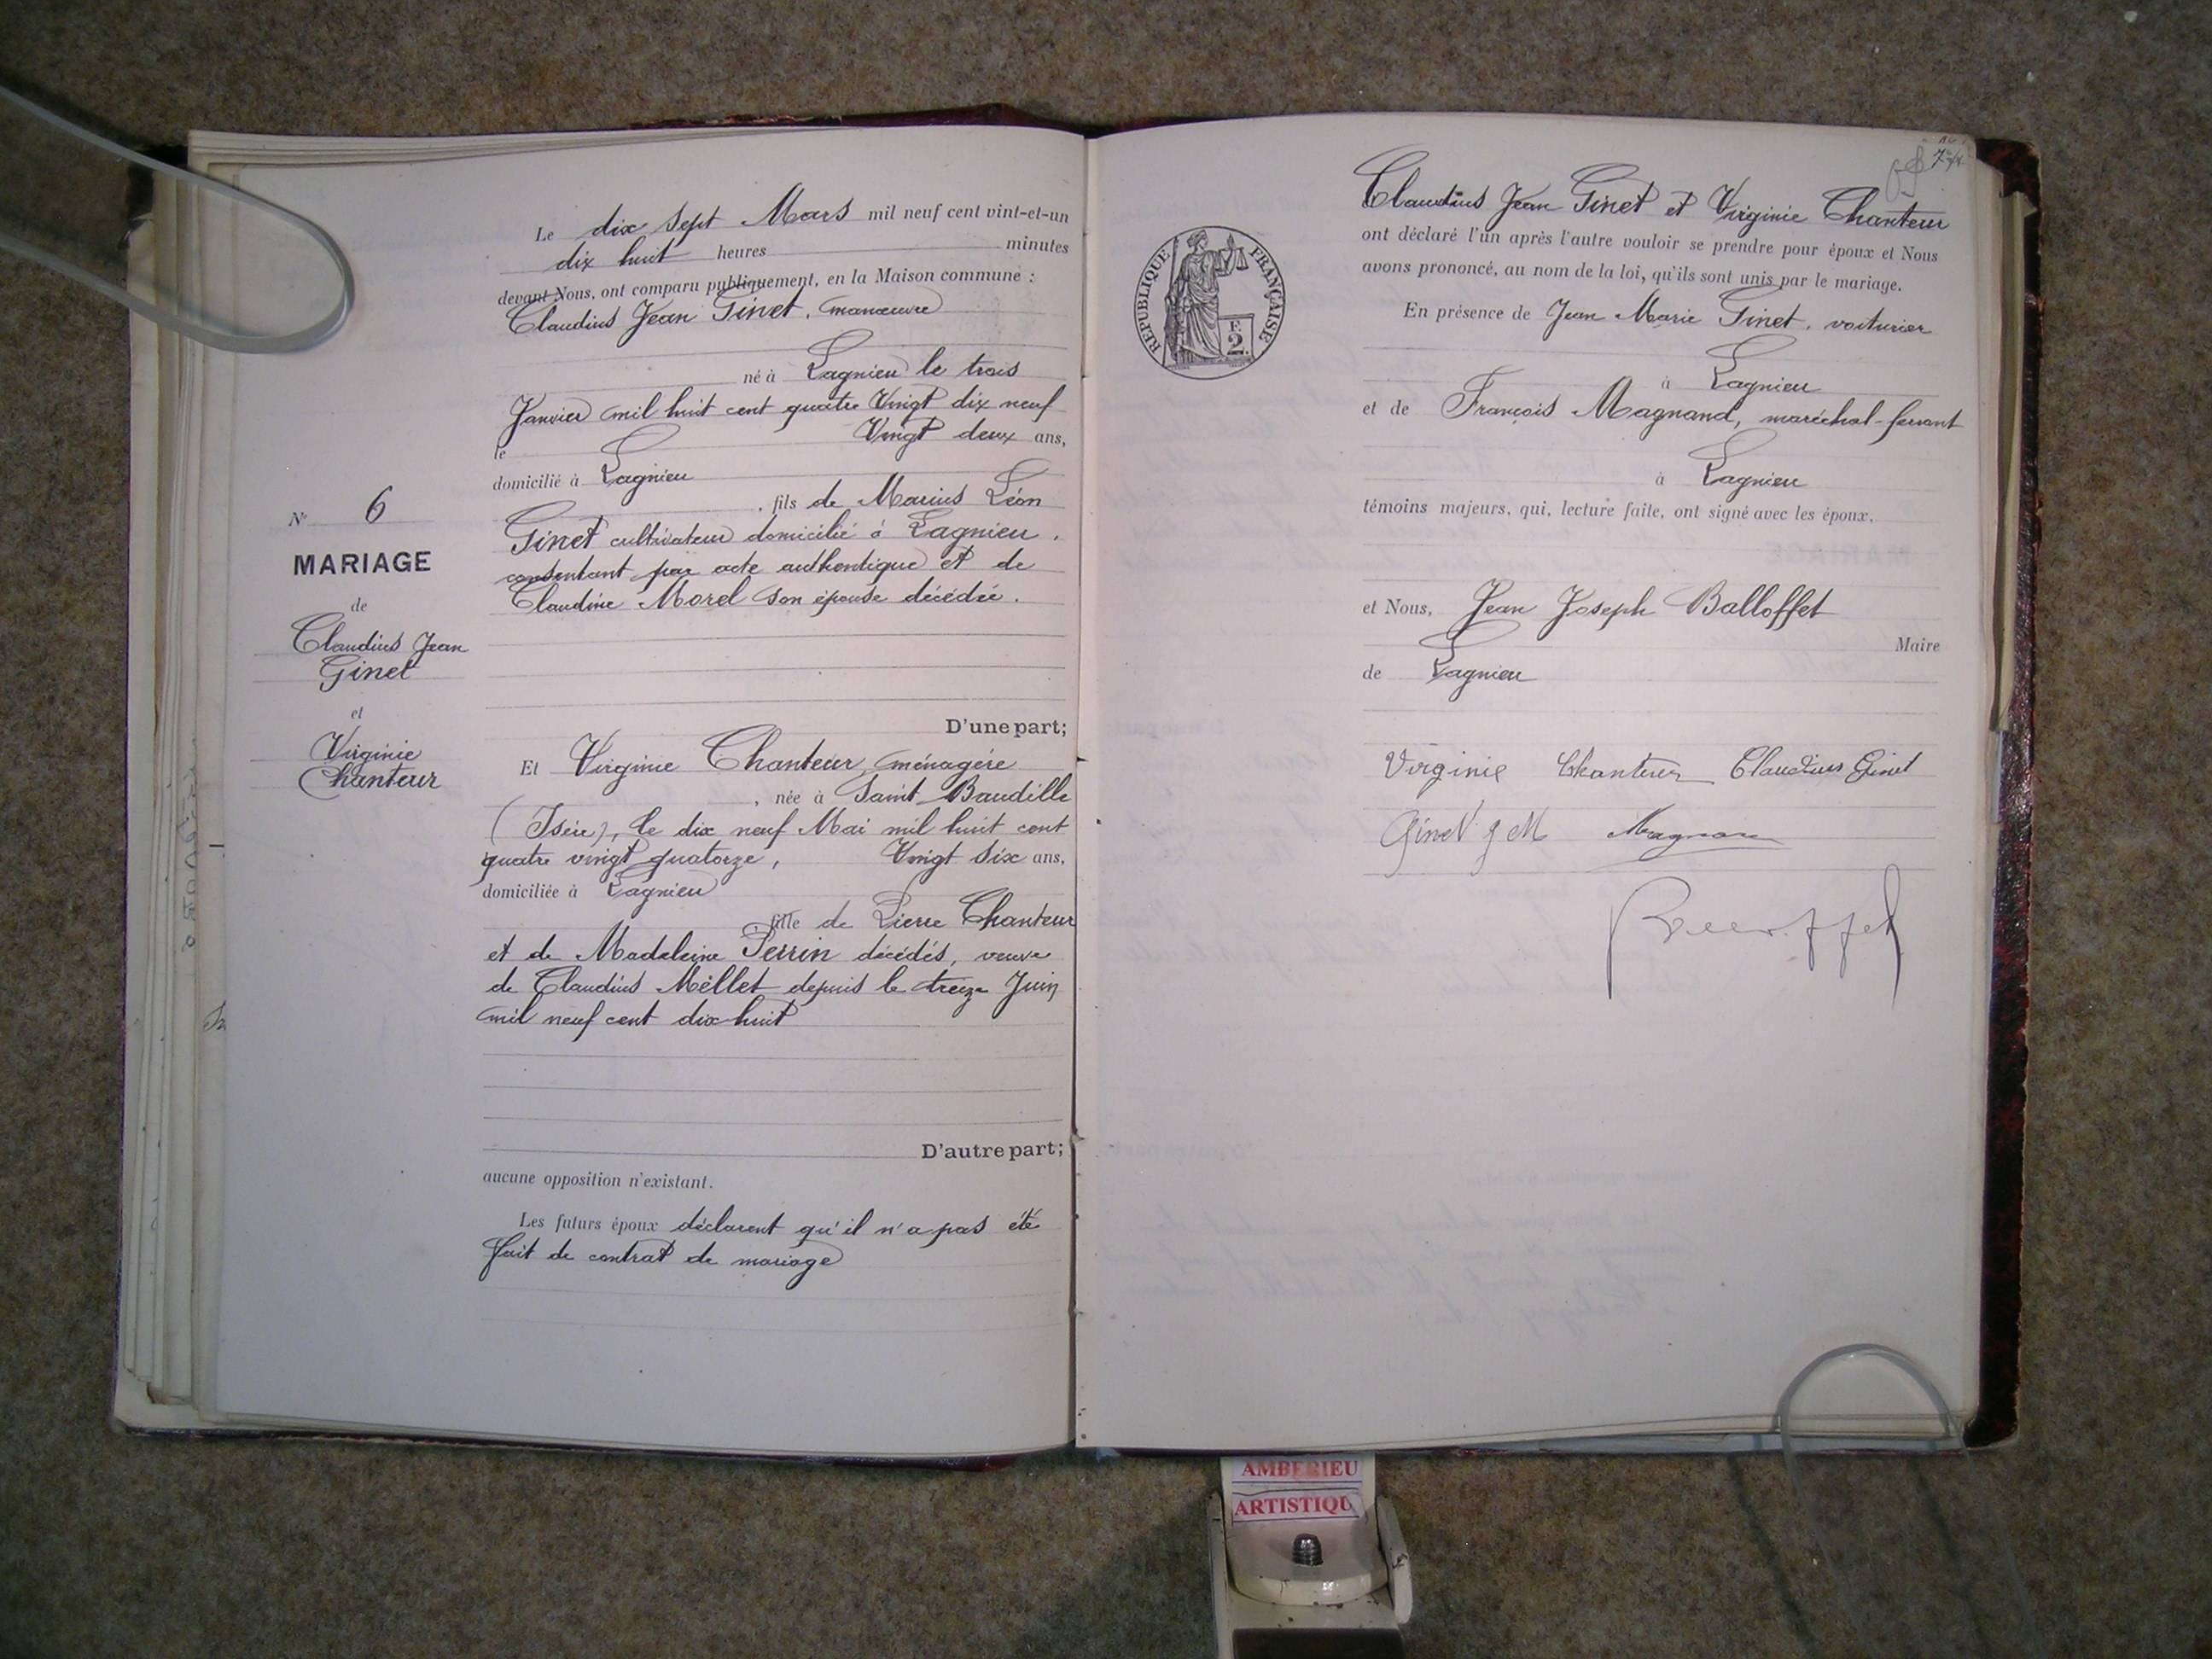 N° 6
MARIAGE
de
Claudius Jean
Ginet
et
Virginie
Chanteur
Le dix sept Mars mil neuf cent vint-et-un
dix huit heures minutes
devant Nous, ont comparu publiquement, en la Maison commune :
Claudius Jean Ginet, manœuvre
né à Lagnieu le trois
Janvier mil huit cent quatre Vingt dix neuf
le Vingt deux ans,
domicilié à Lagnieu
, fils de Marius Léon
Ginet cultivateur domicilié à Lagnieu,
consentant par acte authentique et de
Claudine Morel son épouse décédée.
D'une part;
Et Virginie Chanteur, ménagère
, née à Saint Baudille
(Isère), le dix neuf Mai mil huit cent
quatre vingt quatorze, Vingt six ans,
domiciliée à Lagnieu
fille de Pierre Chanteur
et de Madeleine Perrin décédés, veuve
de Claudius Mellet depuis le treize Juin
mil neuf cent dix-huit
D'autre part;
aucune opposition n'existant.
Les futurs époux déclarent qu'il n'a pas été
fait de contrat de mariage
RÉPUBLIQUE FRANÇAISE
F.
2.
Claudius Jean Ginet et Virginie Chanteur
ont déclaré l'un après l'autre vouloir se prendre pour époux et Nous
avons prononcé, au nom de la loi, qu'ils sont unis par le mariage.
En présence de Jean Marie Ginet, voiturier
à Lagnieu
et de François Magnand, maréchal-ferrant
à Lagnieu
témoins majeurs, qui, lecture faite, ont signé avec les époux,
et Nous, Jean Joseph Balloffet
Maire
de Lagnieu
Virginie Chanteur Claudius Ginet
Ginet J M
AMBERIEU
ARTISTIQU